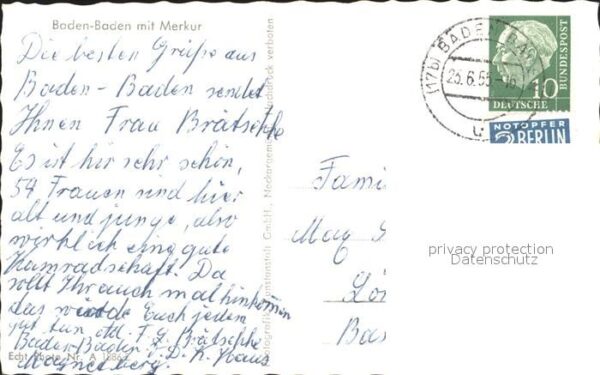 Baden-Baden mit Merkur
Die besten Grüße aus
Baden-Baden sendet
Ihnen Frau Brätschke
Es ist hir sehr schön,
54 Frauen sind hier
alt und junge, also
wirklich eine gute
Kamradschaft. Da
sollt Ihr auch mal hinkommen
das würde Euch jeden
gut tun
Brätschke
Baden-Baden
Haus
Echt Photo Nr. A
Nachdruck verboten
(17b) BADEN-BAD
25.6.55
10
DEUTSCHE
BUNDESPOST
NOTOPFER
2 BERLIN
Fami
May
privacy protection
Datenschutz
Lör
Bas